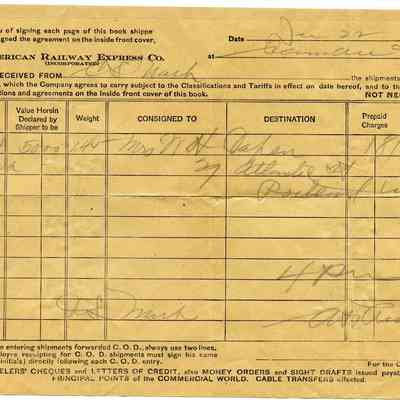 w of signing each page of this book shippe
signed the agreement on the inside front cover,
Date Jan 22
ERICAN RAILWAY EXPRESS CO.
(INCORPORATED)
at
RECEIVED FROM Mark the shipments
, which the Company agrees to carry subject to the Classifications and Tariffs in effect on date hereof, and to
tions and agreements on the inside front cover of this book. NOT NE
Value Herein Declared by Shipper to be Weight CONSIGNED TO DESTINATION Prepaid Charges
Mrs
27 Atlantic St
4 Pm
Mark
e entering shipments forwarded C.O.D., always use two lines.
ployee receipting for C. O. D. shipments must sign his same
initials) directly following each C. O. D. entry.
For the C
ELERS' CHEQUES and LETTERS OF CREDIT, also MONEY ORDERS and SIGHT DRAFTS issued payab
PRINCIPAL POINTS of the COMMERCIAL WORLD. CABLE TRANSFERS effected.